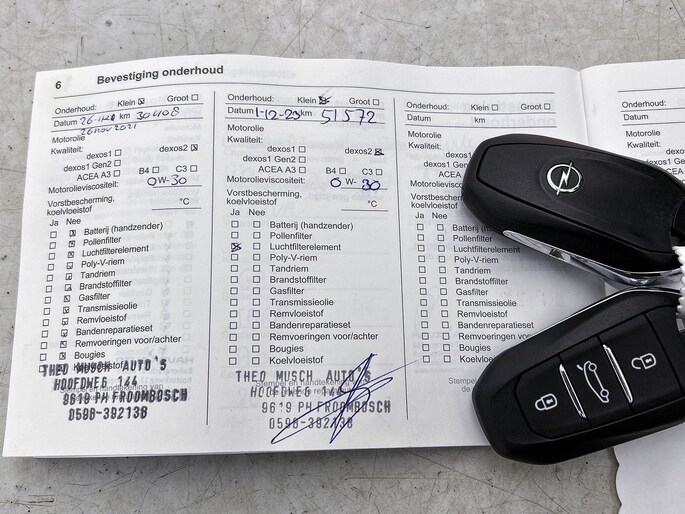 6 Bevestiging onderhoud
Onderhoud: Klein ☒ Groot ☐
Datum km 30408
26nov2021
Motorolie
Kwaliteit:
dexos1 ☐ dexos2 ☒
dexos1 Gen2 ☐
ACEA A3 ☐ B4 ☐ C3 ☐
Motorolieviscositeit:
0W-30
Vorstbescherming,
koelvloeistof °C
Ja Nee
Batterij (handzender)
Pollenfilter
Luchtfilterelement
Poly-V-riem
Tandriem
Brandstoffilter
Gasfilter
Transmissieolie
Remvloeistof
Bandenreparatieset
Remvoeringen voor/achter
Bougies
Koelvloeistof
THEO MUSCH AUTO'S
HOOFDWEG 144
9619 PH FROOMBOSCH
0598-392138
Onderhoud: Klein ☒ Groot ☐
Datum 1-12-23 km 51572
Motorolie
Kwaliteit:
dexos1 ☐ dexos2 ☒
dexos1 Gen2 ☐
ACEA A3 ☐ B4 ☐ C3 ☐
Motorolieviscositeit:
0 W- 30
Vorstbescherming,
koelvloeistof °C
Ja Nee
Batterij (handzender)
Pollenfilter
☒ Luchtfilterelement
Poly-V-riem
Tandriem
Brandstoffilter
Gasfilter
Transmissieolie
Remvloeistof
Bandenreparatieset
Remvoeringen voor/achter
Bougies
Koelvloeistof
Stempel en handtekening
THEO MUSCH AUTO'S
HOOFDWEG 144
9619 PH FROOMBOSCH
0598-392138
Onderhoud: Klein ☐ Groot ☐
Datum km
Motorolie
Kwaliteit:
dexos1 ☐
dexos1 Gen2 ☐
ACEA A3 ☐
Motorolieviscositeit:
Vorstbescherming,
koelvloeistof
Ja Nee
Batterij
Pollenfilter
Luchtfilterelement
Poly-V-riem
Tandriem
Brandstoffilter
Gasfilter
Transmissieolie
Remvloeistof
Bandenreparatieset
Remvoeringen
Bougies
Stempel
Onderhoud:
Datum
Motorolie
Kwaliteit: